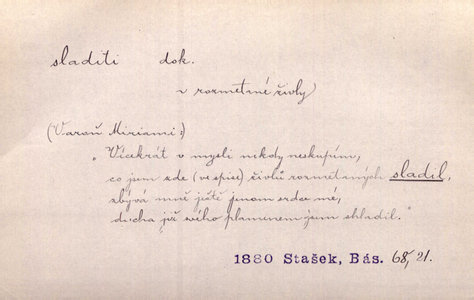 sladiti dok.
v rozmetné živly
(Varoň Miriami:)
"Vícekrát v mysli nekdy neskupím,
co jsem zde (ve spise) živlů rozmetaných sladil,
zbývá mně ještě jenom srdce mé,
ducha již svého plamenem jsem shladil."
1880 Stašek, Bás. 68, 21.